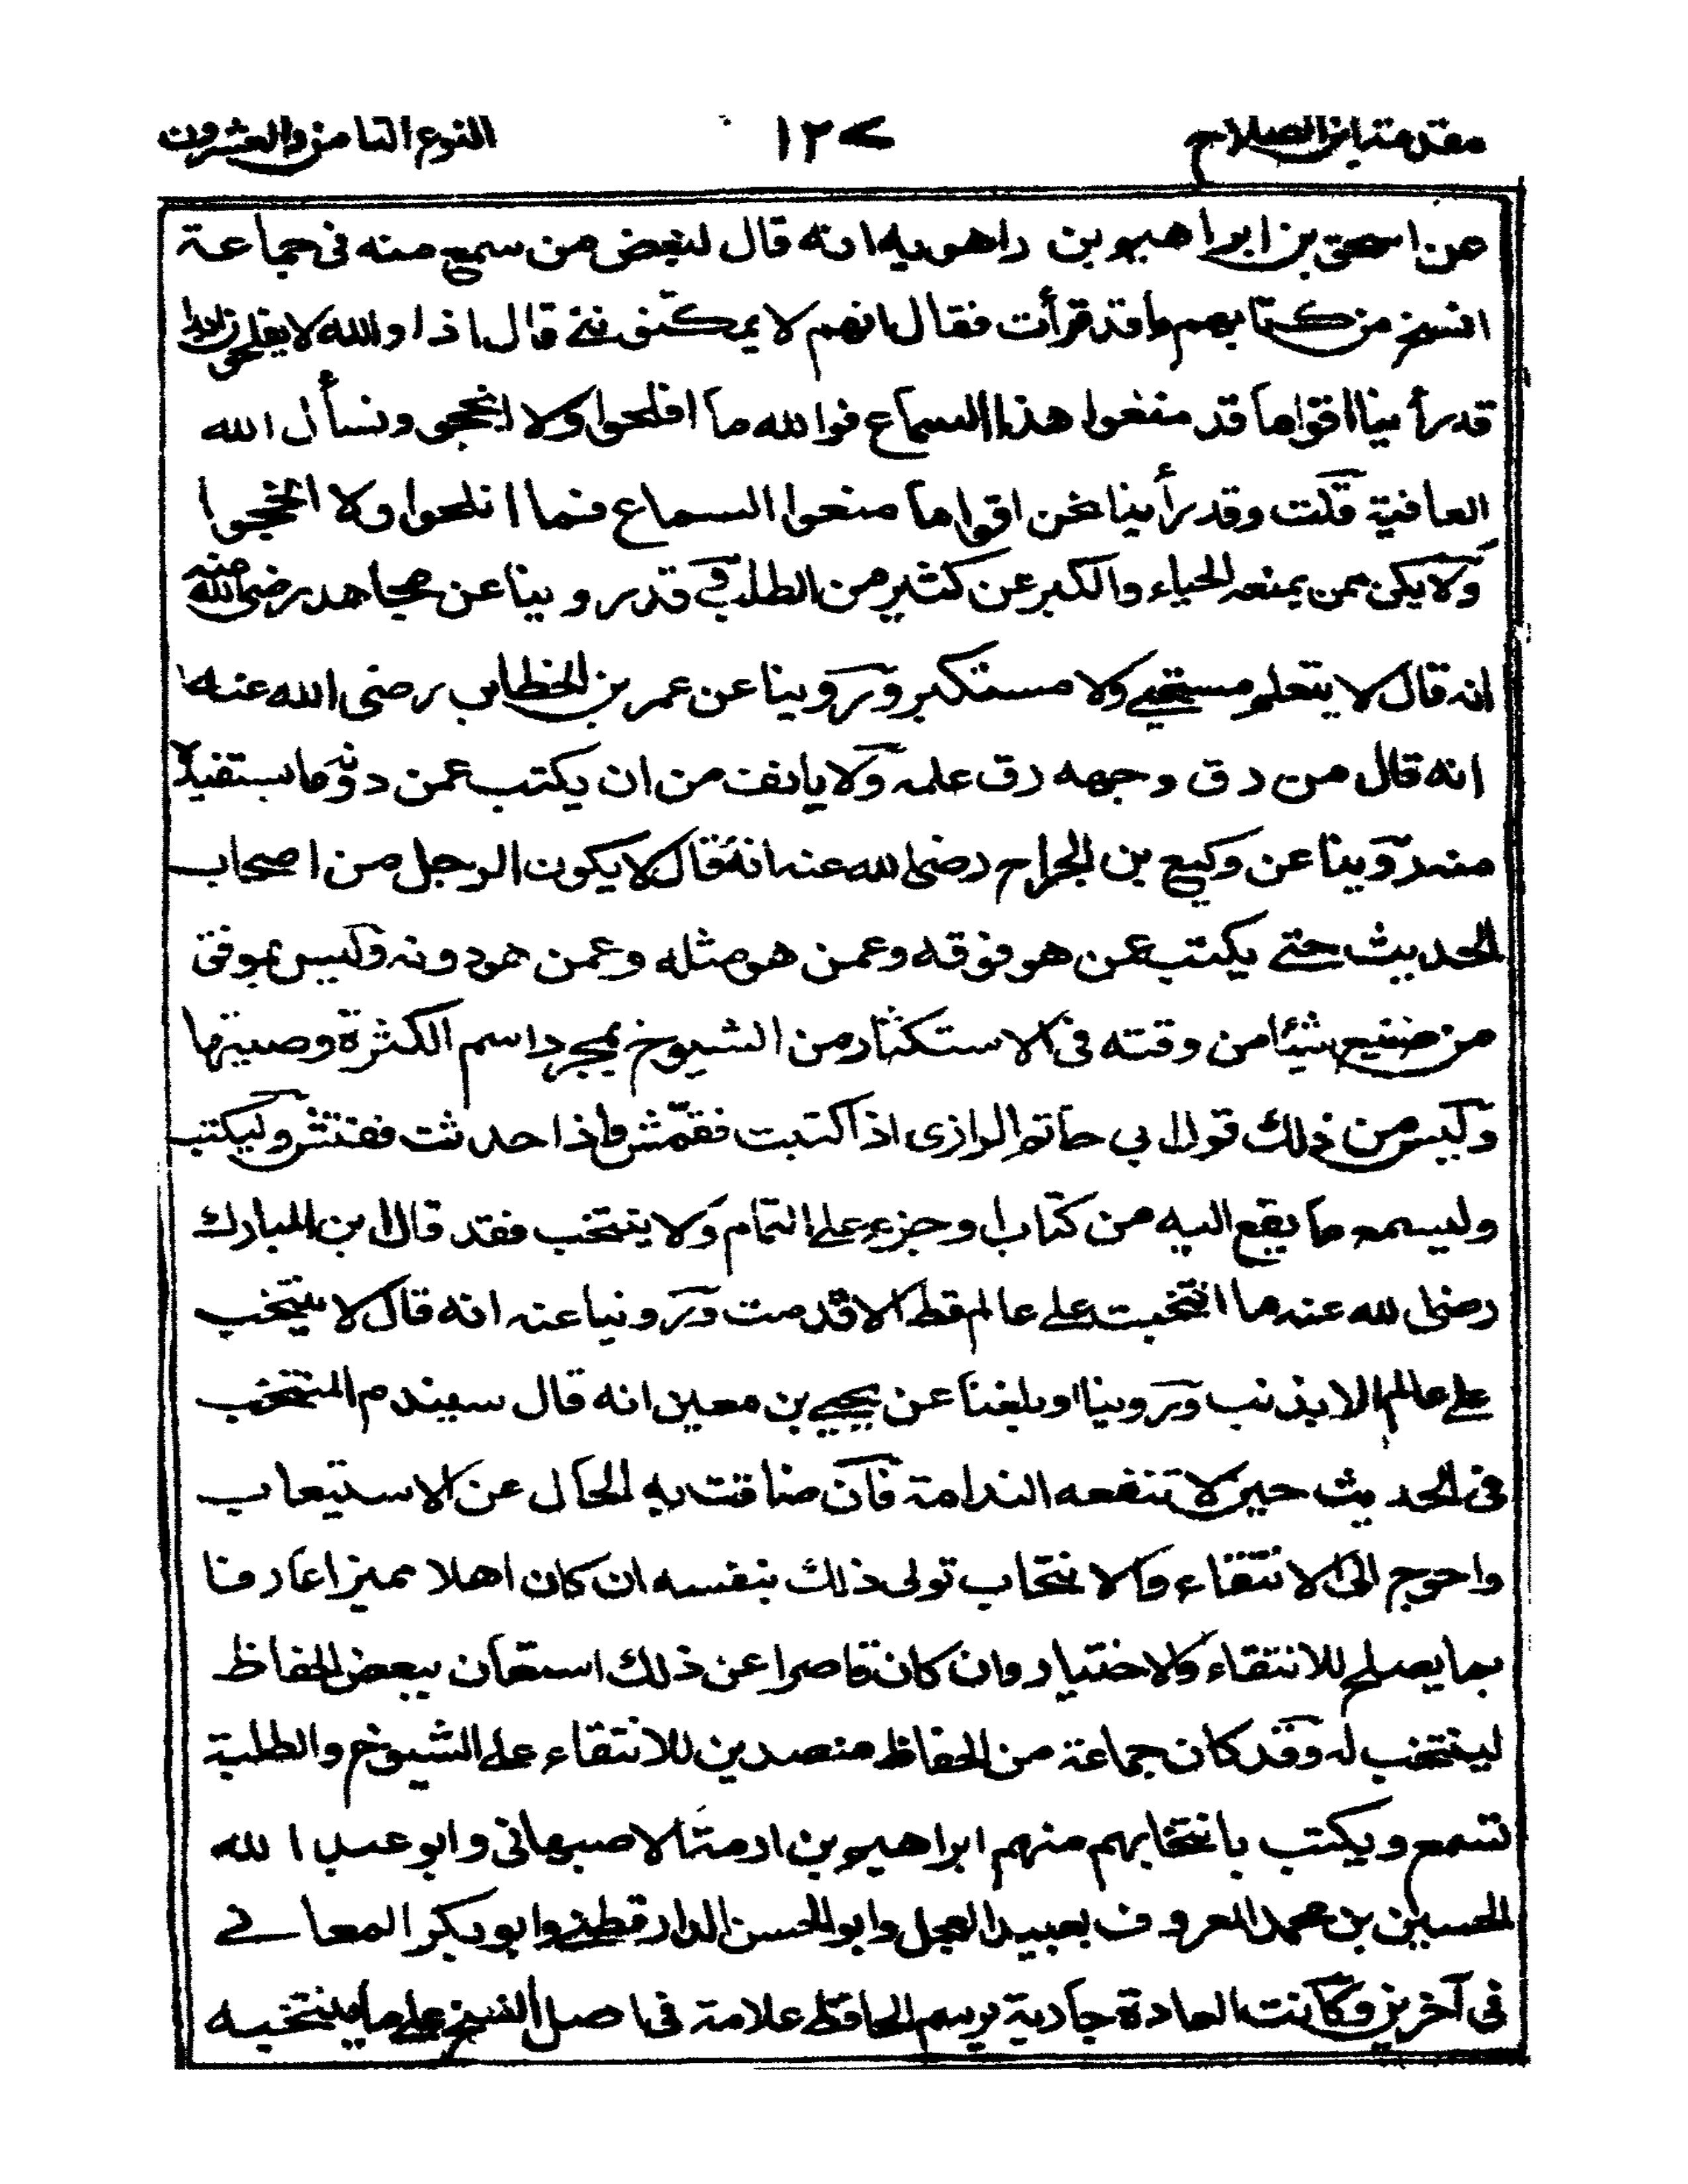 مقدمة ابن الصلاح ١٢٧ النوع الثامن والعشرون
عن اسحق بن ابراهيم بن راهويه انه قال لبعض من سمع منه فى جماعة
انسخ من كتابهم ما قد قرأت فقال انهم لا يمكنونني قال اذا والله لا يفلحون
قد رأينا اقواما قد منعوا هذا السماع فوالله ما افلحوا ولا انجحوا ونسأل الله
العافية قلت وقد رأينا نحن اقواما منعوا السماع فما افلحوا ولا انجحوا
ولا يكن ممن يمنعه الحياء والكبر عن كثير من الطلب فقد روينا عن مجاهد رضى الله عنه
انه قال لا يتعلم مستحيى ولا مستكبر وروينا عن عمر بن الخطاب رضى الله عنه
انه قال من رق وجهه رق علمه ولا يانف من ان يكتب عمن دونه ما يستفيده
منه روينا عن وكيع بن الجراح رضى الله عنه انه قال لا يكون الرجل من اصحاب
الحديث حتى يكتب عمن هو فوقه وعمن هو مثله وعمن هو دونه وليس بموفق
من ضيع شيئا من وقته فى الاستكثار من الشيوخ بمجرد اسم الكثرة وصيتها
وليس من ذلك قول ابي حاتم الرازى اذا كتبت فقمش واذا حدثت ففتش وليكتب
وليسمع ما يقع اليه من كتاب او جزء على التمام ولا ينتخب فقد قال ابن المبارك
رضى الله عنه ما انتخبت على عالم قط الا ندمت وروينا عنه انه قال لا ينتخب
على عالم الا بذنب وروينا او بلغنا عن يحيى بن معين انه قال سيندم المنتخب
فى الحديث حين لا تنفعه الندامة فان ضاقت به الحال عن الاستيعاب
واحوج الى الانتقاء والانتخاب تولى ذلك بنفسه ان كان اهلا مميزا عارفا
بما يصلح للانتقاء والاختيار وان كان قاصرا عن ذلك استعان ببعض الحفاظ
لينتخب له وقد كان جماعة من الحفاظ متصدين للانتقاء على الشيوخ والطلبة
تسمع ويكتب بانتخابهم منهم ابراهيم بن ارمة الاصبهانى وابو عبد الله
الحسين بن محمد المعروف بعبيد العجل وابو الحسن الدارقطني وابو بكر المعابي
فى آخرين وكانت العادة جارية برسم الحافظ علامة فى اصل الشيخ على ما ينتخبه